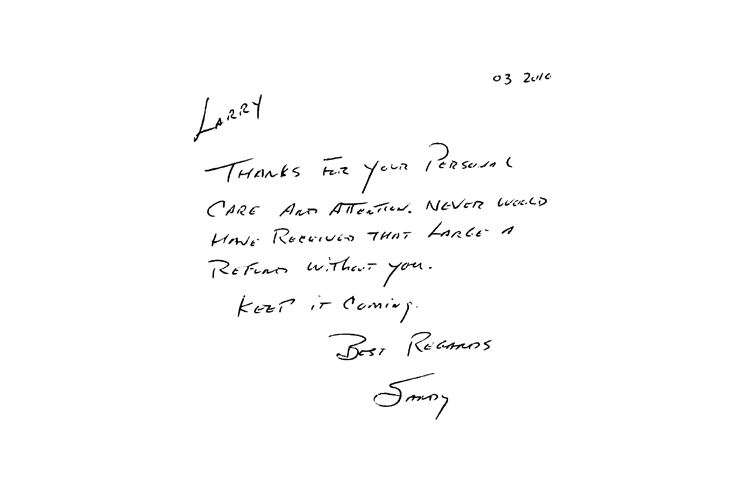 03 2010
Larry
Thanks for your personal
care and attention. Never would
have received that large a
refund without you.
Keep it coming.
Best Regards
Sandy